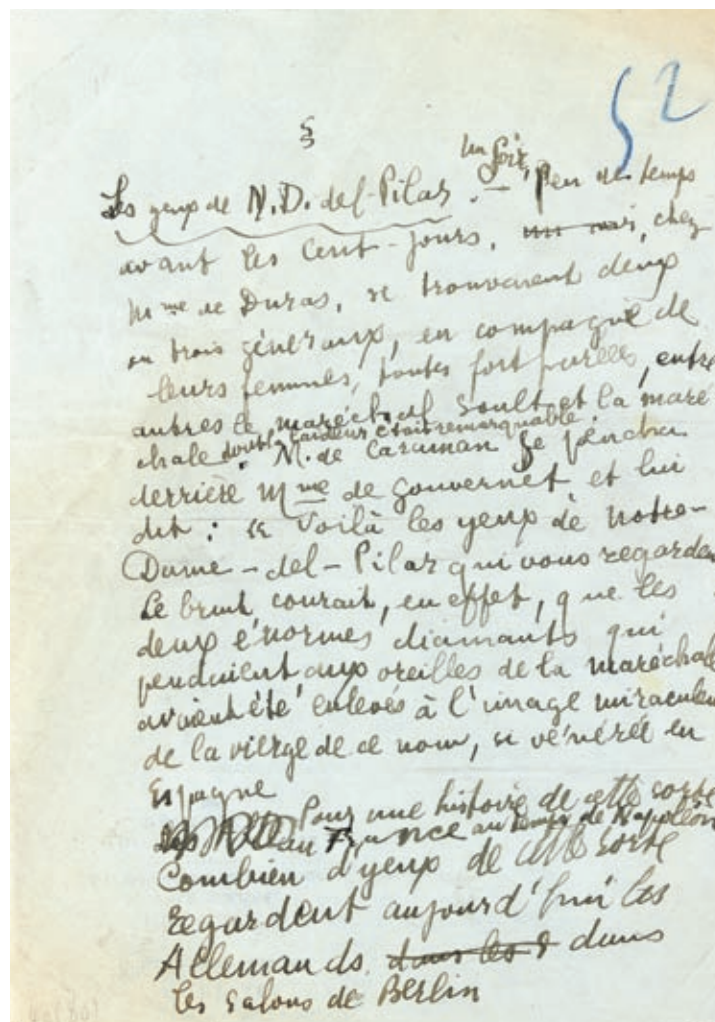 52
§
un soir,
Les yeux de N.D. del-Pilar. — Peu de temps
avant les Cent-jours, un soir, chez
Mme de Duras, se trouvaient deux
ou trois généraux, en compagnie de
leurs femmes, toutes fort parées, entre
autres le maréchal Soult et la maré
chale dont la laideur était remarquable.
M. de Caraman se pencha
derrière Mme de Gouvernet et lui
dit : « Voilà les yeux de Notre-
Dame-del-Pilar qui vous regarden
Le bruit courait, en effet, que les
deux énormes diamants qui
pendaient aux oreilles de la maréchal
avaient été enlevés à l'image miraculeu
de la vierge de ce nom, si vénérée en
Espagne
Pour une histoire de cette sorte
en France au temps de Napoléon
Combien d'yeux de cette sorte
regardent aujourd'hui les
Allemands dans les dans
les salons de Berlin